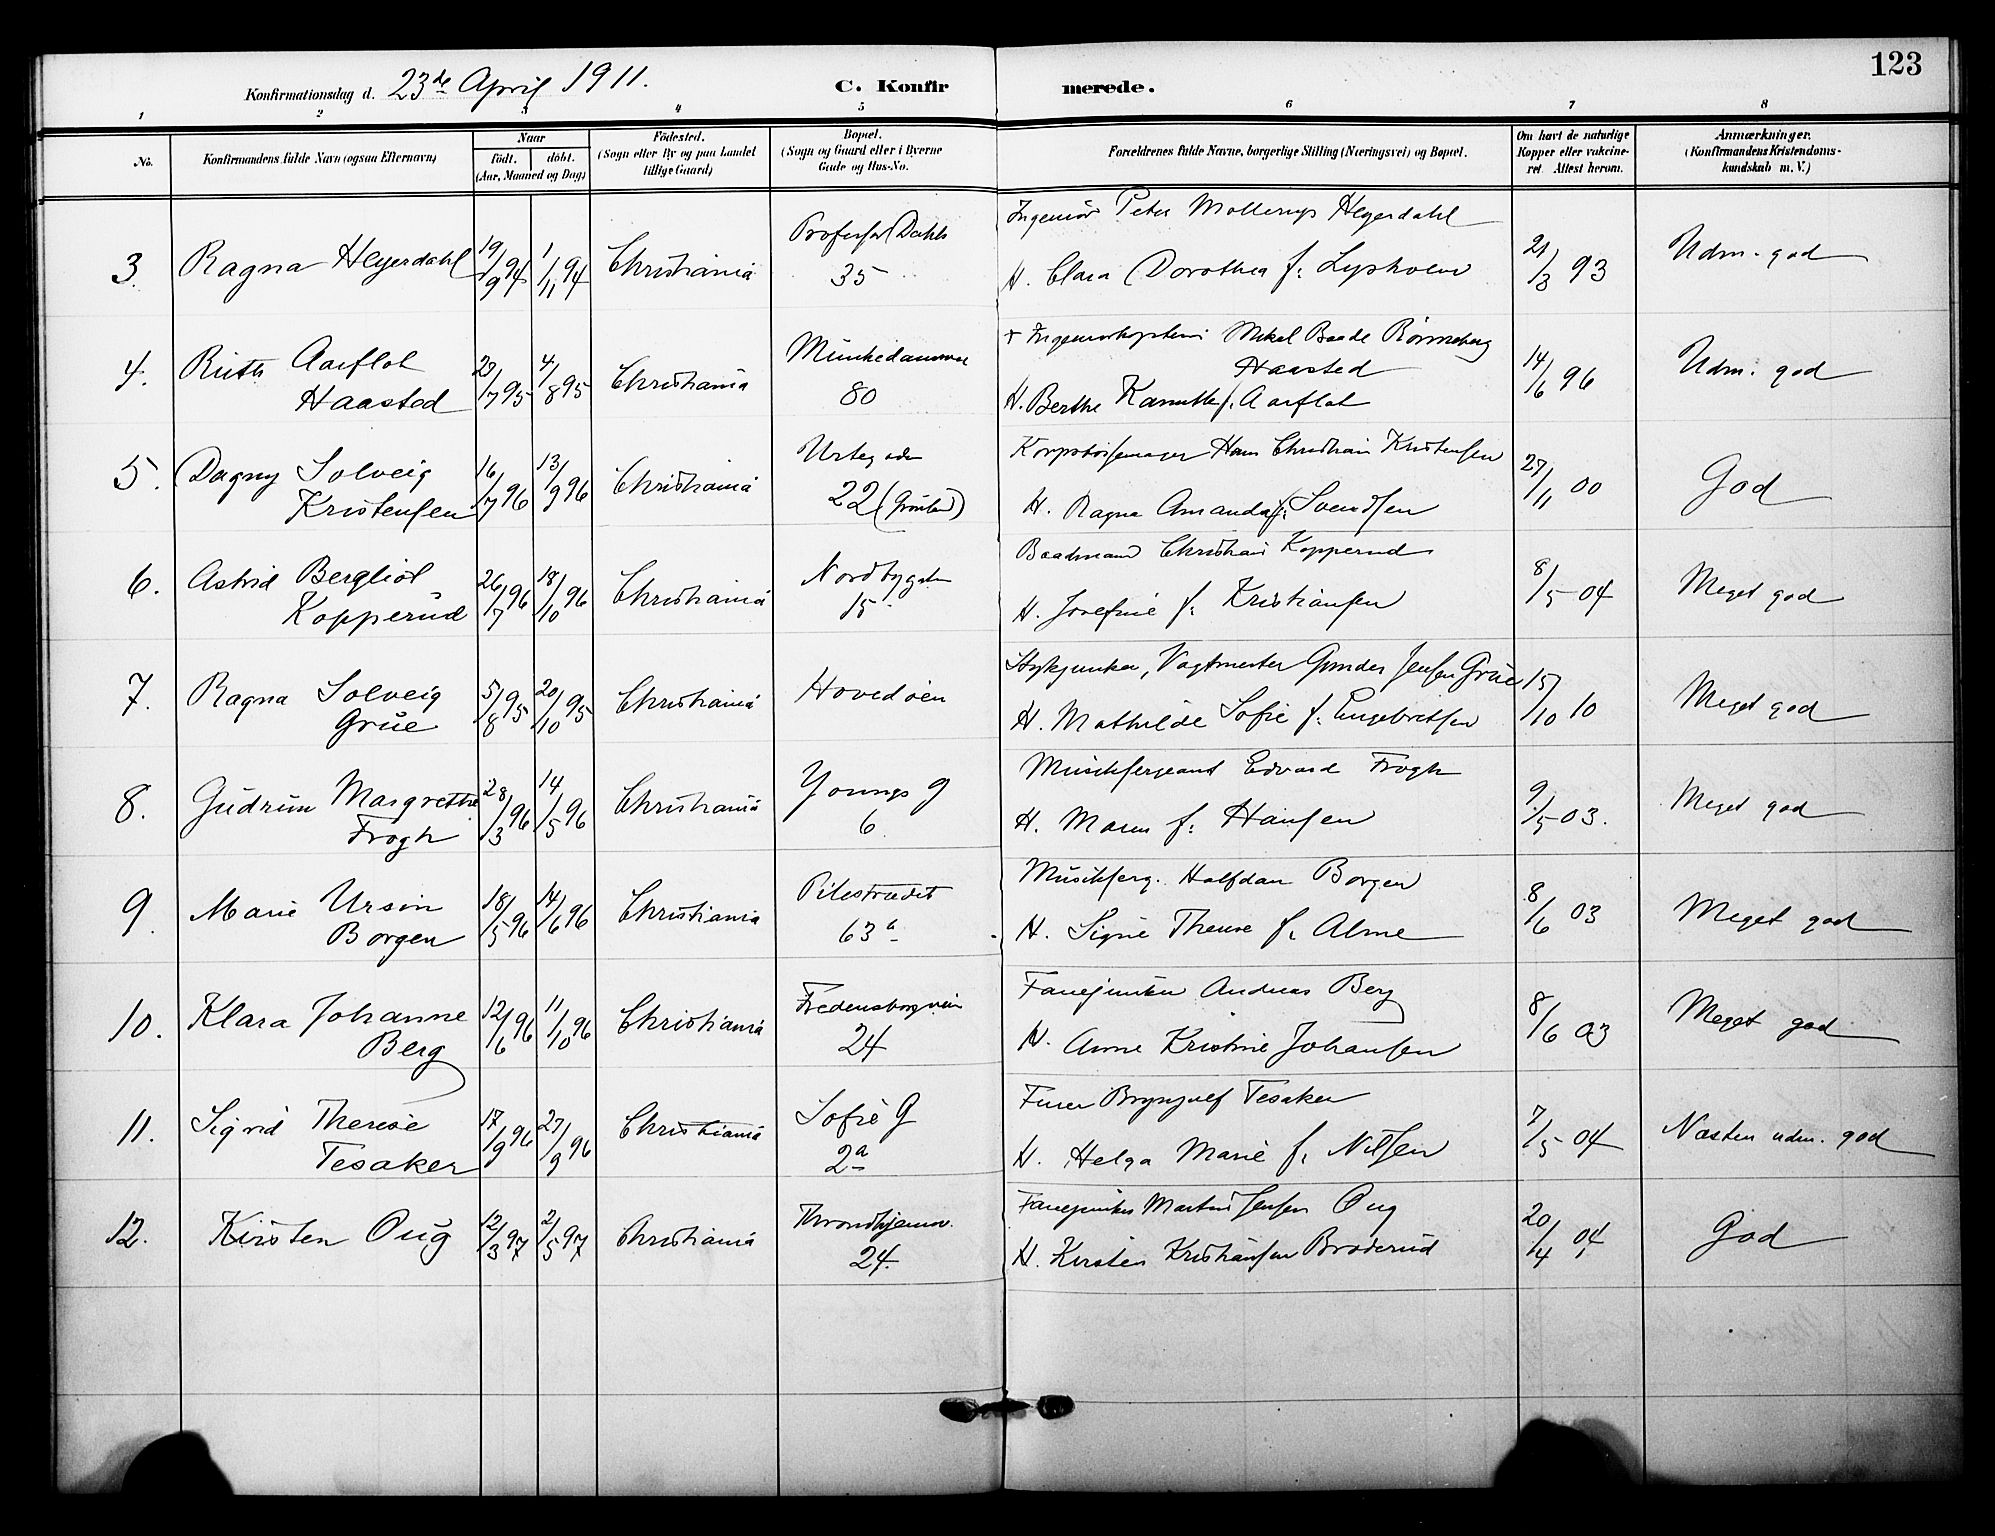 123
Konfirmationsdag d. 23de April 1911.
C. Konfirmerede.
1 2 3 4 5 6 7 8
No.
Konfirmandens fulde Navn (ogsaa Efternavn)
Naar
født. döbt.
(Aar, Maaned og Dag)
Födested.
(Sogn eller By og paa Landet
tillige Gaard)
Bopæl.
(Sogn og Gaard eller i Byerne
Gade og Hus-No.
Forældrenes fulde Navne, borgerlige Stilling (Næringsvei) og Bopæl.
Om havt de naturlige
Kopper eller vakcine-
ret Attest herom.
Anmærkninger.
(Konfirmandens Kristendoms-
kundskab m. V.)
3. Ragna Heyerdahl 19/9 94 1/11 94 Christiania Professor Dahls
35
Ingeniør Peter Mollerup Heyerdahl
H. Clara Dorothea f. Lysholm
21/3 93 Udm. god
4. Ruth Aarflot
Haasted
23/7 95 4/8 95 Christiania Munkedamsvei
80
+ Ingeniørkaptein Mikal Baade Rønneberg
Haasted
H. Berthe f. Aarflot
14/6 96 Udm. god
5. Dagny Solveig
Kristensen
16/7 96 13/9 96 Christiania Urtegaden
22 (Grønland)
Korpsbøssemager Hans Christian Kristensen
H. Ragna Amanda f. Svendsen
27/11 00 God
6. Astrid Bergliot
Kopperud
26/7 96 18/10 96 Christiania Nordbygaden
15
Baadmand Christian Kopperud
H. Josefine f. Kristiansen
8/5 04 Meget god
7. Ragna Solveig
Grüe
5/8 95 20/10 95 Christiania Hovedøen
Stykjunker, Vagtmester Gunder Jensen Grüe
H. Mathilde Sofie f. Engebretsen
15/10 10 Meget god
8. Gudrun Margrethe
Frogh
28/3 96 14/5 96 Christiania Youngs g
6.
Musiksergeant Edvard Frogh
H. Maren f. Hansen
9/5 03. Meget god
9. Marie Ursin
Borgen
18/5 96 14/6 96 Christiania Pilestrædet
63 a
Musikserg. Halfdan Borgen
H. Signe Therese f. Alme
8/6 03 Meget god
10. Klara Johanne
Berg
12/6 96 11/10 96 Christiania Fredensborgvein
24
Fanejunker Andreas Berg
H. Anne Kristine Johansen
8/6 03 Meget god
11. Sigrid Therese
Tesaker
17/9 96 27/9 96 Christiania Sofie G
2a
Furer Brynjulf Tesaker
H. Helga Marie f. Nilsen
7/5 04 Næsten udm. god
12. Kirsten Oug 12/3 97 2/5 97 Christiania Throndhjemsv.
24.
Fanejunker Martin Jensen Oug
H. Kirsten Kristiansen Broderud
20/4 04 God